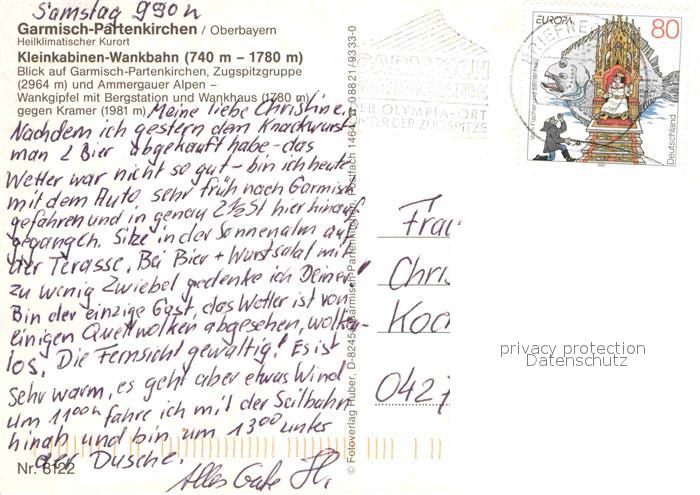 Samstag 9³⁰ h
Garmisch-Partenkirchen / Oberbayern
Heilklimatischer Kurort
Kleinkabinen-Wankbahn (740 m – 1780 m)
Blick auf Garmisch-Partenkirchen, Zugspitzgruppe
(2964 m) und Ammergauer Alpen –
Wankgipfel mit Bergstation und Wankhaus (1780 m)
gegen Kramer (1981 m)
Meine liebe Christine,
Nachdem ich gestern dem Knackwurst-
man 2 Bier abgekauft habe - das
Wetter war nicht so gut - bin ich heute
mit dem Auto sehr früh nach Garmisch
gefahren und in genau 2½ St hier hinauf
gegangen. Sitze in der Sonnenalm auf
der Terasse. Bei Bier + Wurstsalat mit
zu wenig Zwiebel gedenke ich Deiner!
Bin der einzige Gast, das Wetter ist von
einigen Quellwolken abgesehen, wolken-
los. Die Fernsicht gewaltig! Es ist
sehr warm, es geht aber etwas Wind
um 11⁰⁰h fahre ich mit der Seilbahn
hinab und bin um 13⁰⁰ unter
der Dusche.
Alles Gute
Nr. 8122
© Fotoverlag Huber, D-8245 Garmisch-Partenkirchen, Postfach 1464, 08821/9333-0
GARMISCH
PARTENKIRCHEN
DER OLYMPIA-ORT
UNTER DER ZUGSPITZE
BRIEFRE
EUROPA
80
Fischer und seiner Frau
Deutschland
1997
Frau
Chris
Koch
0427
privacy protection
Datenschutz